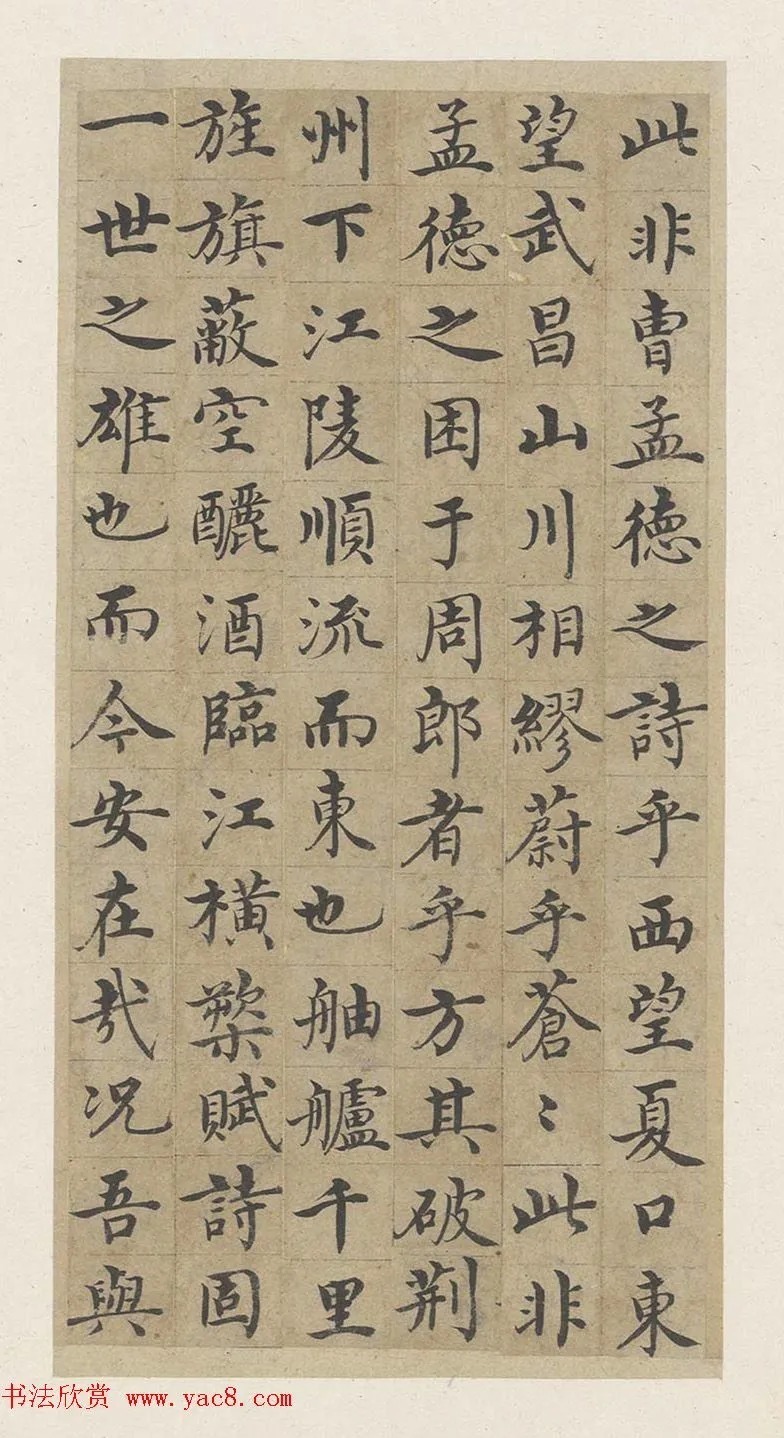 此非曹孟德之詩乎西望夏口東
望武昌山川相繆蔚乎蒼〻此非
孟德之困于周郎者乎方其破荆
州下江陵順流而東也舳艫千里
旌旗蔽空釃酒臨江横槊賦詩固
一世之雄也而今安在哉况吾與
书法欣赏 www.yac8.com